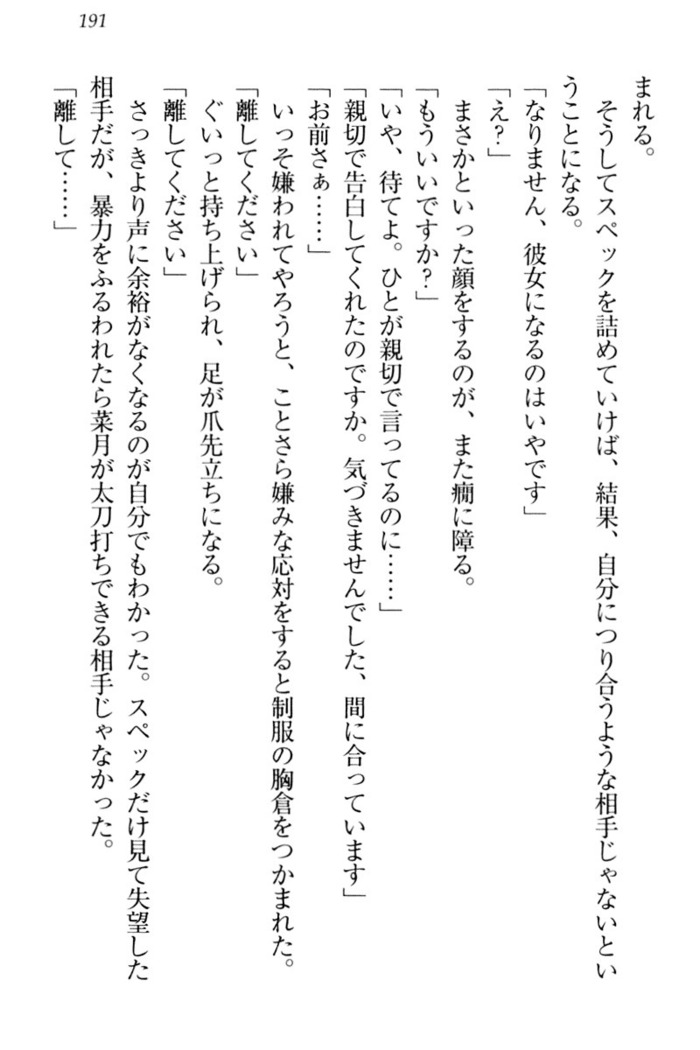 191
まれる。
　そうしてスペックを詰めていけば、結果、自分につり合うような相手じゃないとい
うことになる。
「なりません、彼女になるのはいやです」
「え？」
　まさかといった顔をするのが、また癇に障る。
「もういいですか？」
「いや、待てよ。ひとが親切で言ってるのに……」
「親切で告白してくれたのですか。気づきませんでした、間に合っています」
「お前さぁ……」
　いっそ嫌われてやろうと、ことさら嫌みな応対をすると制服の胸倉をつかまれた。
「離してください」
　ぐいっと持ち上げられ、足が爪先立ちになる。
「離してください」
　さっきより声に余裕がなくなるのが自分でもわかった。スペックだけ見て失望した
相手だが、暴力をふるわれたら菜月が太刀打ちできる相手じゃなかった。
「離して……」